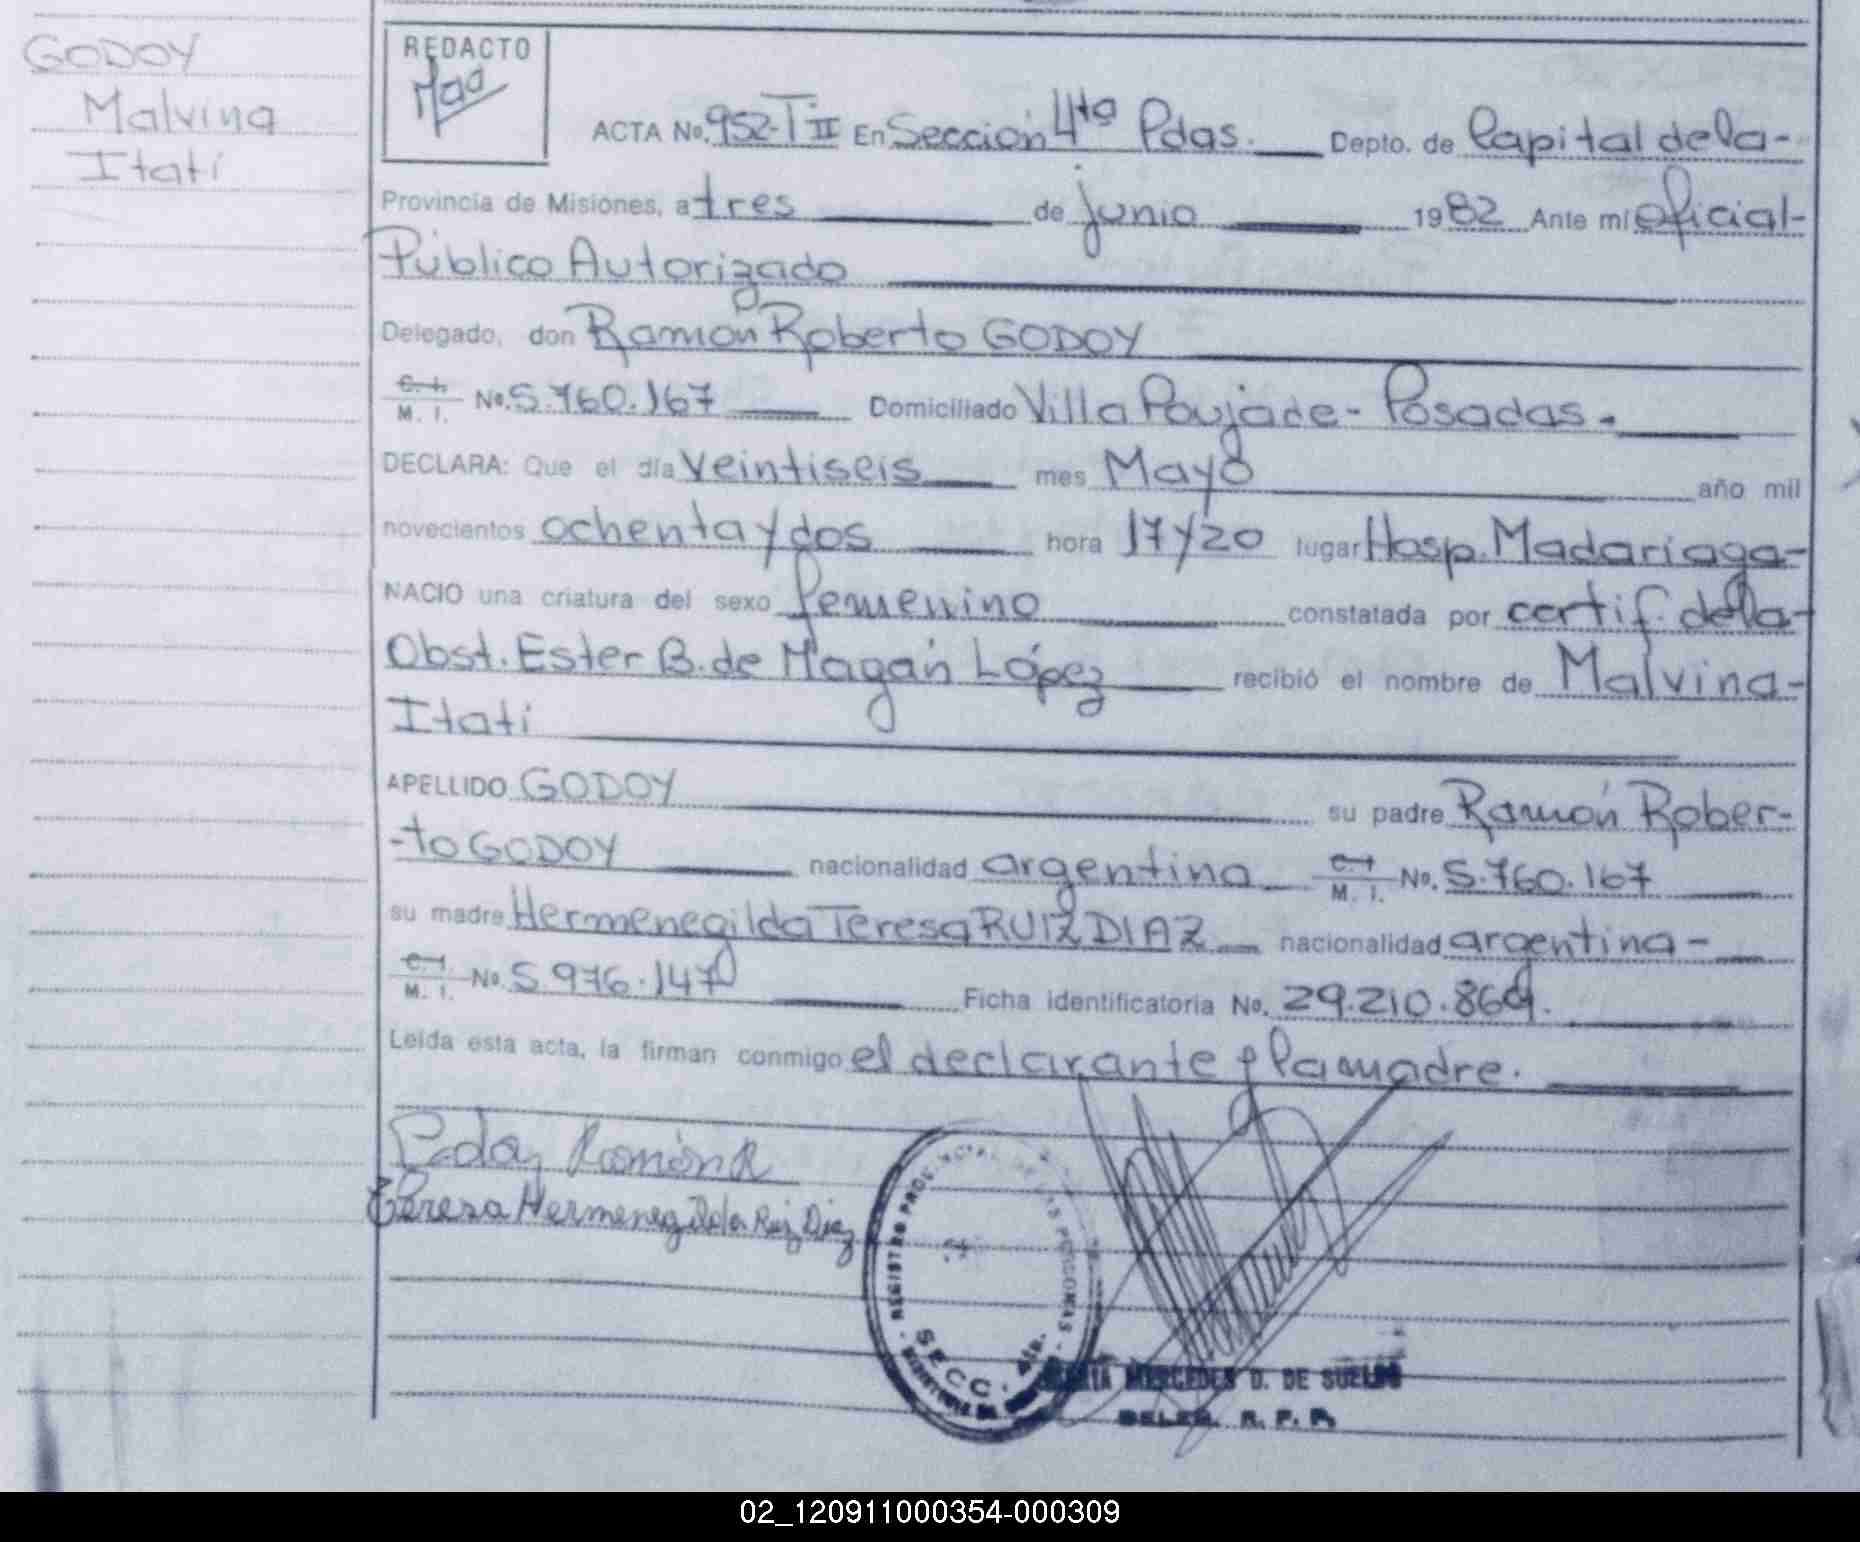 GODOY
Malvina
Itatí
REDACTO
ACTA No. 952-T II En Sección 4ta Pdas. Depto. de Capital de la-
Provincia de Misiones, a tres de junio 1982 Ante mí Oficial-
Público Autorizado
Delegado, don Ramón Roberto GODOY
C. I. M. I. No. 5.760.167 Domiciliado Villa Poujade - Posadas.
DECLARA: Que el día veintiseis mes Mayo año mil
novecientos ochenta y dos hora 17 y 20 lugar Hosp. Madariaga-
NACIO una criatura del sexo femenino constatada por certif. de la-
Obst. Ester B. de Magán López recibió el nombre de Malvina-
Itatí
APELLIDO GODOY su padre Ramón Rober-
-to GODOY nacionalidad argentina C. I. M. I. No. 5.760.167
su madre Hermenegilda Teresa RUIZ DIAZ nacionalidad argentina-
C. I. M. I. No. 5.976.147 Ficha identificatoria No. 29.210.869.
Leída esta acta, la firman conmigo el declarante y la madre.
Ramón R
Teresa Hermenegilda Ruiz Diaz
REGISTRO PROVINCIAL DE LAS PERSONAS
SECC. 4ta.
MERCEDES D. DE SUELDO
DELEG. R. P. P.
02_120911000354-000309